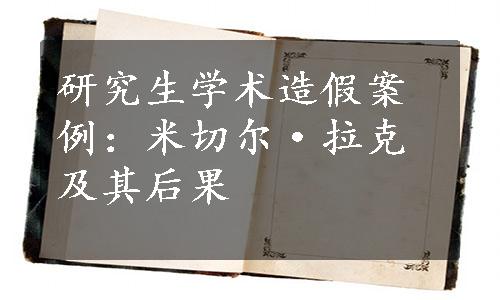 研究生学术造假案
例：米切尔·拉克
及其后果